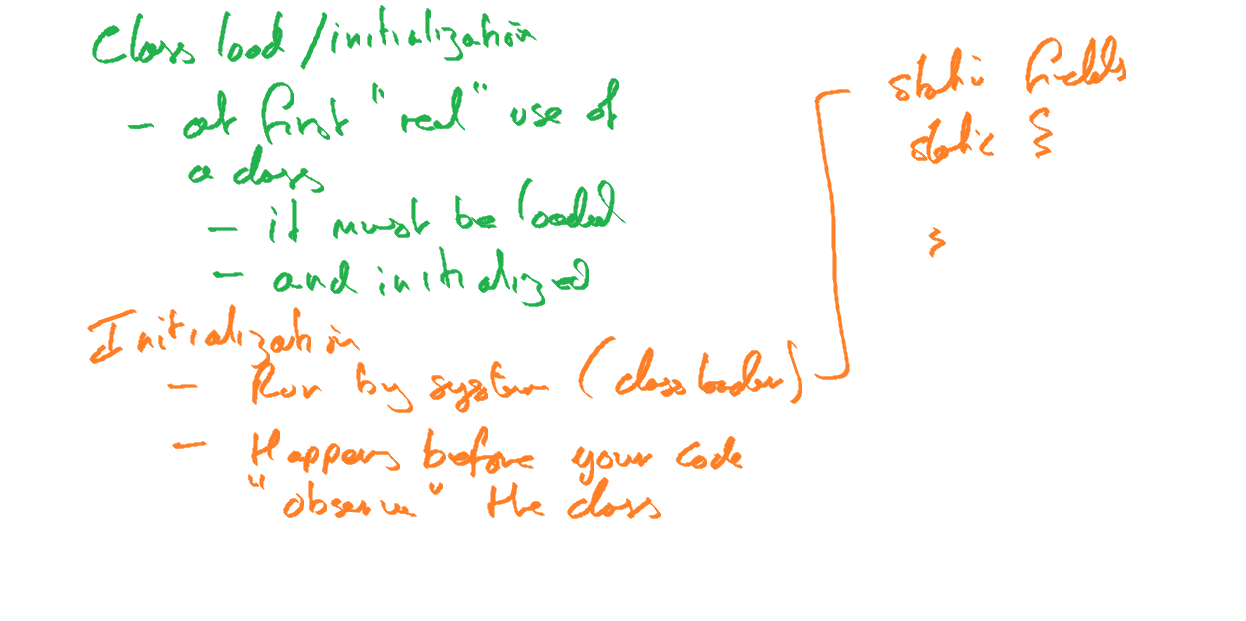 Class load / initialization
- at first "real" use of
a class
- it must be loaded
- and initialized
Initialization
- Run by system (classloader)
- Happens before your code
"observe" the class
static fields
static {
}